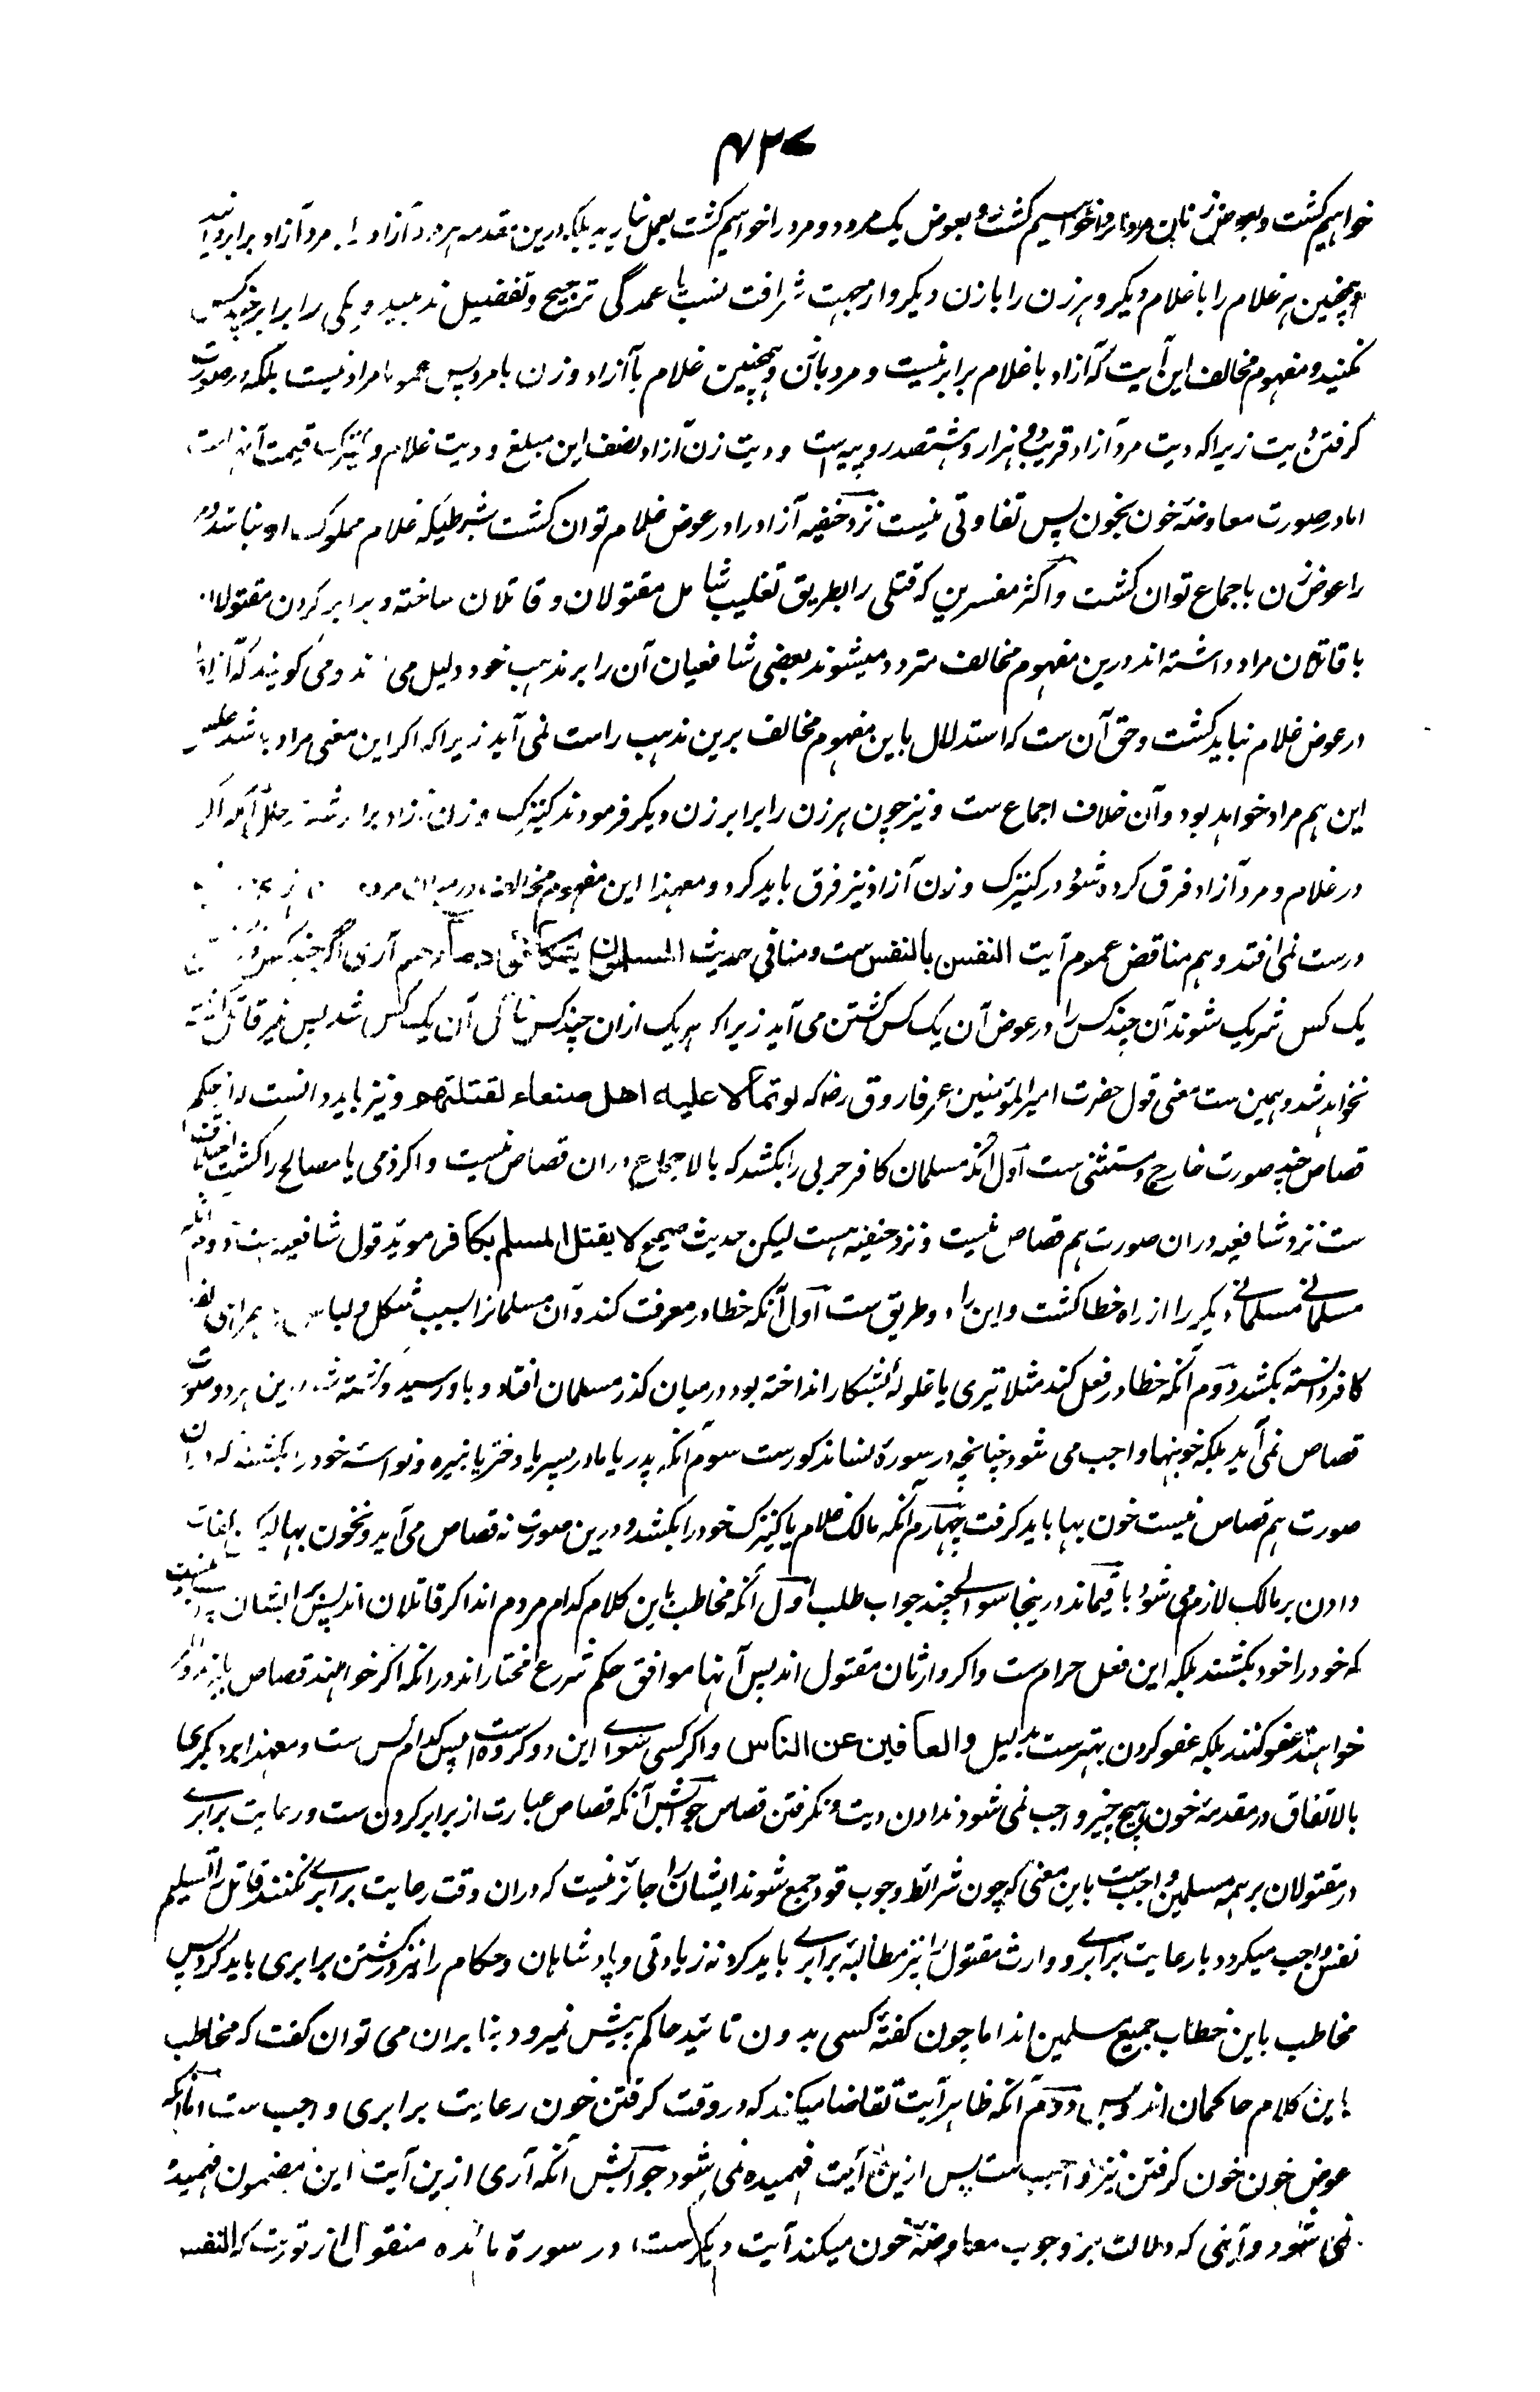 خواهیم کشت و بعوض زنان مردانرا خواهیم کشت و بعوض یک مرد دو مرد را خواهیم کشت بعمل نیارید بلکه درین مقدمه هر مرد آزاد را با مرد آزاد برابر دانید
و همچنین هر غلام را با غلام دیگر و هر زن را با زن دیگر و از جهت شرافت نسب یا عمدگی ترجیح و تفضیل ندهید و یکی را برابر چند کس
نکنید و مفهوم مخالف این آیت که آزاد با غلام برابر نیست و مرد با زن و همچنین غلام با آزاد و زن با مرد پس عموما مراد نیست بلکه در صورت
گرفتن دیت زیرا که دیت مرد آزاد قریب دو هزار و هشتصد روپیه است و دیت زن آزاد نصف این مبلغ و دیت غلام و کنیزک قیمت آنهاست
اما در صورت معاوضهٔ خون بخون پس تفاوتی نیست نزد حنفیه آزاد را در عوض غلام توان کشت بشرطیکه غلام مملوک او نباشد و مرد
را عوض زن باجماع توان کشت و اکثر مفسرین که قتلی را بطریق تغلیب شامل مقتولان و قاتلان ساخته و برابر کردن مقتولان
با قاتلان مراد داشته اند درین مفهوم مخالف متردد میشوند بعضی شافعیان آن را بر مذهب خود دلیل می و می گویند که آزاد را
در عوض غلام نباید کشت و حق آن ست که استدلال باین مفهوم مخالف برین مذهب راست نمی آید زیرا که اگر این معنی مراد باشد عکس
این هم مراد خواهد بود و آن خلاف اجماع ست و نیز چون هر زن را برابر زن دیگر فرمودند کنیزک و زن آزاد برابر شد حال آنکه اگر
در غلام و مرد آزاد فرق کرده شود در کنیزک و زن آزاد نیز فرق باید کرد و معهذا این مفهوم مخالف در میان مرد
درست نمی افتد و هم مناقض عموم آیت النفس بالنفس ست و منافی حدیث المسلمون یتکافئو دماؤهم آری اگر چند کس در
یک کس شریک شوند آن چند کس را در عوض آن یک کس کشتن می آید زیرا که هر یک ازان چند کس قاتل آن یک کس شد پس غیر قاتل کشته
نخواهد شد و همین ست معنی قول حضرت امیر المؤمنین عمر فاروق رض که لو تمالا علیه اهل صنعاء لقتلتهم و نیز باید دانست که از حکم
قصاص چند صورت خارج و مستثنی ست اول آنکه مسلمان کافر حربی را بکشد که بالاجماع دران قصاص نیست و اگر ذمی یا مصالح را کشت اختلاف
ست نزد شافعیه دران صورت هم قصاص نیست و نزد حنفیه هست لیکن حدیث صحیح لا یقتل المسلم بکافر موید قول شافعیه ست دوم آنکه
مسلمانی مسلمانی دیگر را از راه خطا کشت و این را دو طریق ست اول آنکه خطا در معرفت کند و آن مسلمانرا بسبب شکل و لباس
کافر دانسته بکشد دوم آنکه خطا در فعل کند مثلا تیری یا غلولهٔ بشکار انداخته بود در میان گذر مسلمان افتاد و باو رسید و کشته شد درین هر دو صورت
قصاص نمی آید بلکه خونبها واجب می شود چنانچه در سورهٔ نساء مذکور ست سوم آنکه پدر یا مادر پسر یا دختر یا نبیره و نواسهٔ خود را بکشند که دران
صورت هم قصاص نیست خون بها باید گرفت چهارم آنکه مالک غلام یا کنیزک خود را بکشد و درین صورت نه قصاص می آید و نه خون بها لیکن کفارت
دادن بر مالک لازم می شود باقیماند درینجا سوالی چند جواب طلب اول آنکه مخاطب باین کلام کدام مردم اند اگر قاتلان اند پس بر ایشان واجب نیست
که خود را خود بکشند بلکه این فعل حرام ست و اگر وارثان مقتول اند پس آنها موافق حکم شرع مختار اند در آنکه اگر خواهند قصاص گیرند و اگر
خواهند عفو کنند بلکه عفو کردن بهتر ست بدلیل والعافین عن الناس و اگر کسی سوای این دو گروه ست پس کدام کس ست و معهذا بر دیگری
بالاتفاق در مقدمهٔ خون هیچ چیز واجب نمی شود نه دادن دیت و نه گرفتن قصاص جوابش آنکه قصاص عبارت از برابر کردن ست و رعایت برابری
در مقتولان بر همه مسلمین واجب ست باین معنی که چون شرائط وجوب قود جمع شوند ایشان را جائز نیست که دران وقت رعایت برابری نکنند قاتل را تسلیم
نفس واجب میگردد با رعایت برابری و وارث مقتول را نیز مطالبهٔ برابری باید کرد نه زیادتی و پادشاهان و حکام را نیز در کشتن برابری باید کرد پس
مخاطب باین خطاب جمیع مسلمین اند اما چون گفتهٔ کسی بدون تائید حاکم پیش نمیرود بنابران می توان گفت که مخاطب
باین کلام حاکمان اند و بس دوم آنکه ظاهر آیت تقاضا میکند که در وقت گرفتن خون رعایت برابری واجب ست اما آنکه
عوض خون خون گرفتن نیز واجب ست پس ازین آیت فهمیده نمی شود جوابش آنکه آری ازین آیت این مضمون فهمیده
نمی شود و آیتی که دلالت بر وجوب معاوضهٔ خون میکند آیت دیگر ست در سورهٔ مائده منقول از توریت که النفس